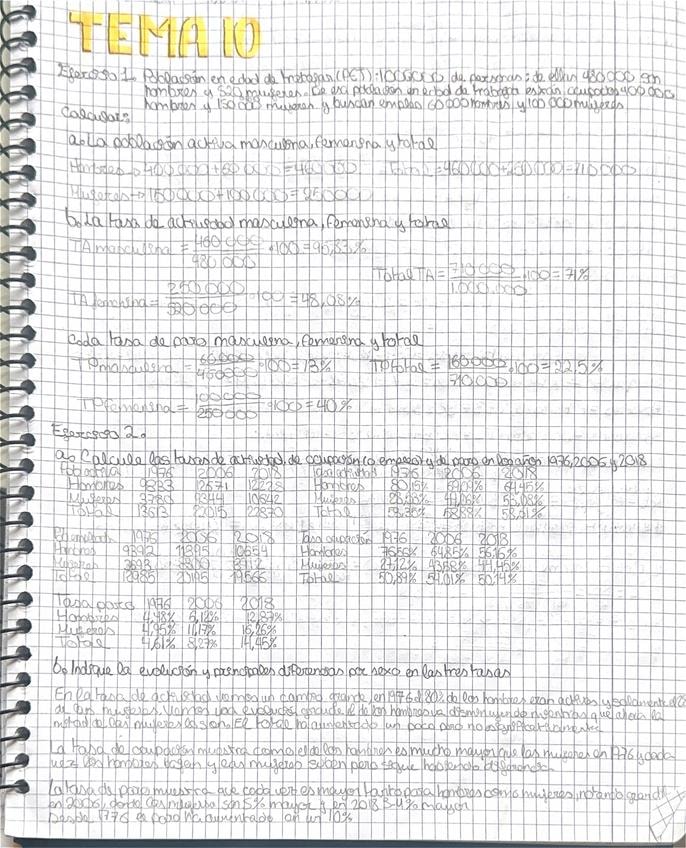 TEMA 10
Ejercicio 1. Población en edad de trabajar (PET): 1000000 de personas; de ellas 480000 son
hombres y 520 mujeres. De esa población en edad de trabajar están ocupados 400000
hombres y 150000 mujeres y buscan empleo 60000 hombres y 100000 mujeres
Calcular:
a. La población activa masculina, femenina y total
Hombres → 400000+60000=460000 Total=460000+250000=710000
Mujeres → 150000+100000=250000
b. La tasa de actividad masculina, femenina y total
TA masculina = 460000/480000 · 100 = 95,83%
Total TA = 710000/1.000.000 · 100 = 71%
TA femenina = 250000/520000 · 100 = 48,08%
c. La tasa de paro masculina, femenina y total
TP masculina = 60000/460000 · 100 = 13% TP total = 160000/710000 · 100 = 22,5%
TP femenina = 100000/250000 · 100 = 40%
Ejercicio 2.
a. Calcule las tasas de actividad, de ocupación (o empleo) y de paro en los años 1976, 2006 y 2018
Pob activa 1976 2006 2018 Tasa actividad 1976 2006 2018
Hombres 12671 12228 Hombres 80,15% 69,09% 64,45%
Mujeres 3780 9344 10642 Mujeres 53,08%
Total 13613 22015 22870 Total 58,88%
1976 2006 2018 Tasa ocupación 1976 2006 2018
Hombres 9392 11895 10654 Hombres 76,56% 64,85% 56,15%
Mujeres 3593 8300 8912 Mujeres 27,12% 44,45%
Total 12985 20195 19566 Total 50,89% 54,01% 50,14%
Tasa paro 1976 2006 2018
Hombres 4,48% 6,12% 12,87%
Mujeres 4,95% 11,17% 16,26%
Total 4,61% 8,27% 14,45%
b. Indique la evolución y principales diferencias por sexo en las tres tasas
En la tasa de actividad vemos un cambio grande, en 1976 el 80% de los hombres eran activos y solamente el
de las mujeres. Vemos una evolución grande, el de los hombres va disminuyendo mientras que ahora la
mitad de las mujeres lo son. El total ha aumentado un poco pero no significativamente
La tasa de ocupación muestra como el de los hombres es mucho mayor que las mujeres en 1976 y cada
vez los hombres bajan y las mujeres suben pero sigue habiendo diferencia
La tasa de paro muestra que cada vez es mayor tanto para hombres como mujeres, notando
en 2006, donde las mujeres son 5% mayor y en 2018 3-4% mayor
Desde 1976 el paro ha aumentado en un 10%